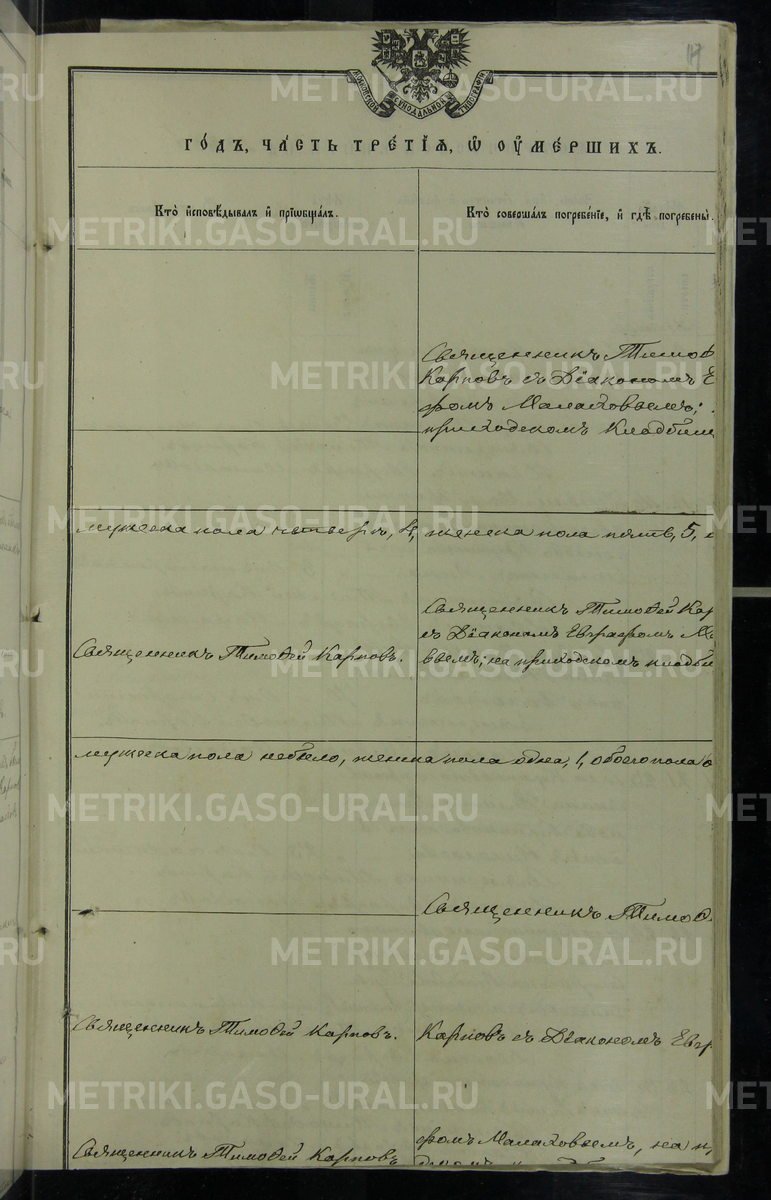 МОСКОВСКОЙ СѴНОДАЛЬНОЙ ТИПОГРАФІИ
117
ГО́ДЪ, ЧА́СТЬ ТРЕ́ТІЯ, Ѡ҆ ОУ҆МЕ́РШИХЪ.
Кто̀ и҆сповѣ́дывалъ и҆ прїѡбща́лъ.
Кто̀ соверша́лъ погребе́нїе, и҆ гдѣ̀ погребены̀.
Священникъ Тимоѳ
Карповъ съ Діакономъ Е
фомъ Малаховымъ;
приходскомъ кладбищ
мужеска пола четверо, 4, женска пола пять, 5,
Священникъ Тимоѳей Карповъ.
Священникъ Тимоѳей Кар
съ Діакономъ Евграфомъ М
вымъ; на приходскомъ кладби
мужеска пола небыло, женска пола одна, 1, обоего пола о
Священникъ Тимоѳ
Священникъ Тимоѳей Карповъ.
Карповъ съ Діакономъ Евгр
Священникъ Тимоѳей Карповъ
фомъ Малаховымъ, на п
METRIKI.GASO-URAL.RU